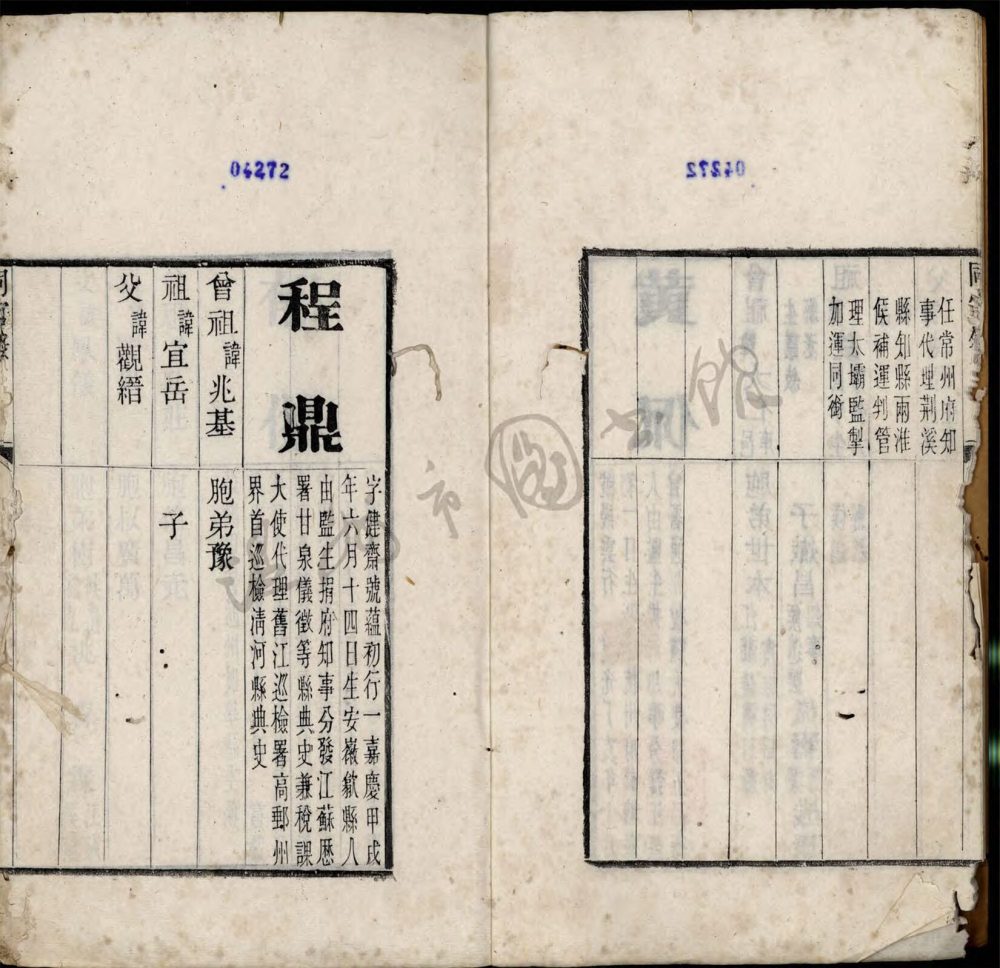 04272
同官錄
任常州府知
事代理荆溪
縣知縣兩淮
候補運判管
理太壩監掣
加運同銜
04272
程鼎
字健齋號蘊初行一嘉慶甲戌
年六月十四日生安徽歙縣人
由監生捐府知事分發江蘇歷
署甘泉儀徵等縣典史兼稅課
大使代理舊江巡檢署高郵州
界首巡檢淸河縣典史
曾祖諱兆基
胞弟豫
祖諱宜岳
子
父諱觀縉
同官錄